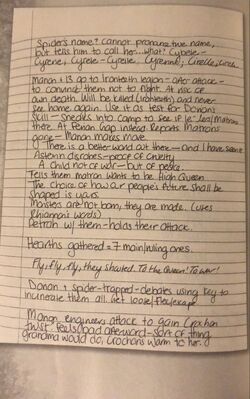 Spider's name? Cannot pronounce true name,
but tells him to call her...what? Cybele-
Cyrene, Cyrele - Cyrelle, Cyrenne, Cirelle, Circe.
Manon + 13 go to Ironteeth legion - after attack -
to convince them not to fight. At risk of
own death. Will be killed (Ironteeth) and never
see home. Use it as test for Dorian's
skill - sneaks into camp to see if le-len/Matrons
there. At Ferian Gap. Instead. Reports Matrons
gone - Manon makes move.
There is a better world out there - and I have seen it
Asterin disrobes - proof of cruelty
A child not of war - but of peace.
Tells them matron wants to be High Queen
The choice of how our people's future shall be
shaped is yours.
Monsters are not born, they are made. (uses
Rhiannon's words)
Petrah w/ them - holds their attack.
Hearths gathered = 7 main/ruling ones.
Fly, fly, fly, they shouted. To the Queen! To war!
Dorian + spider - trapped - debates using key to
incinerate them all. Get loose/
Manon engineers attack to gain Crochan
trust. Feels bad afterward - sort of thing
grandma would do. Crochans warm to her.